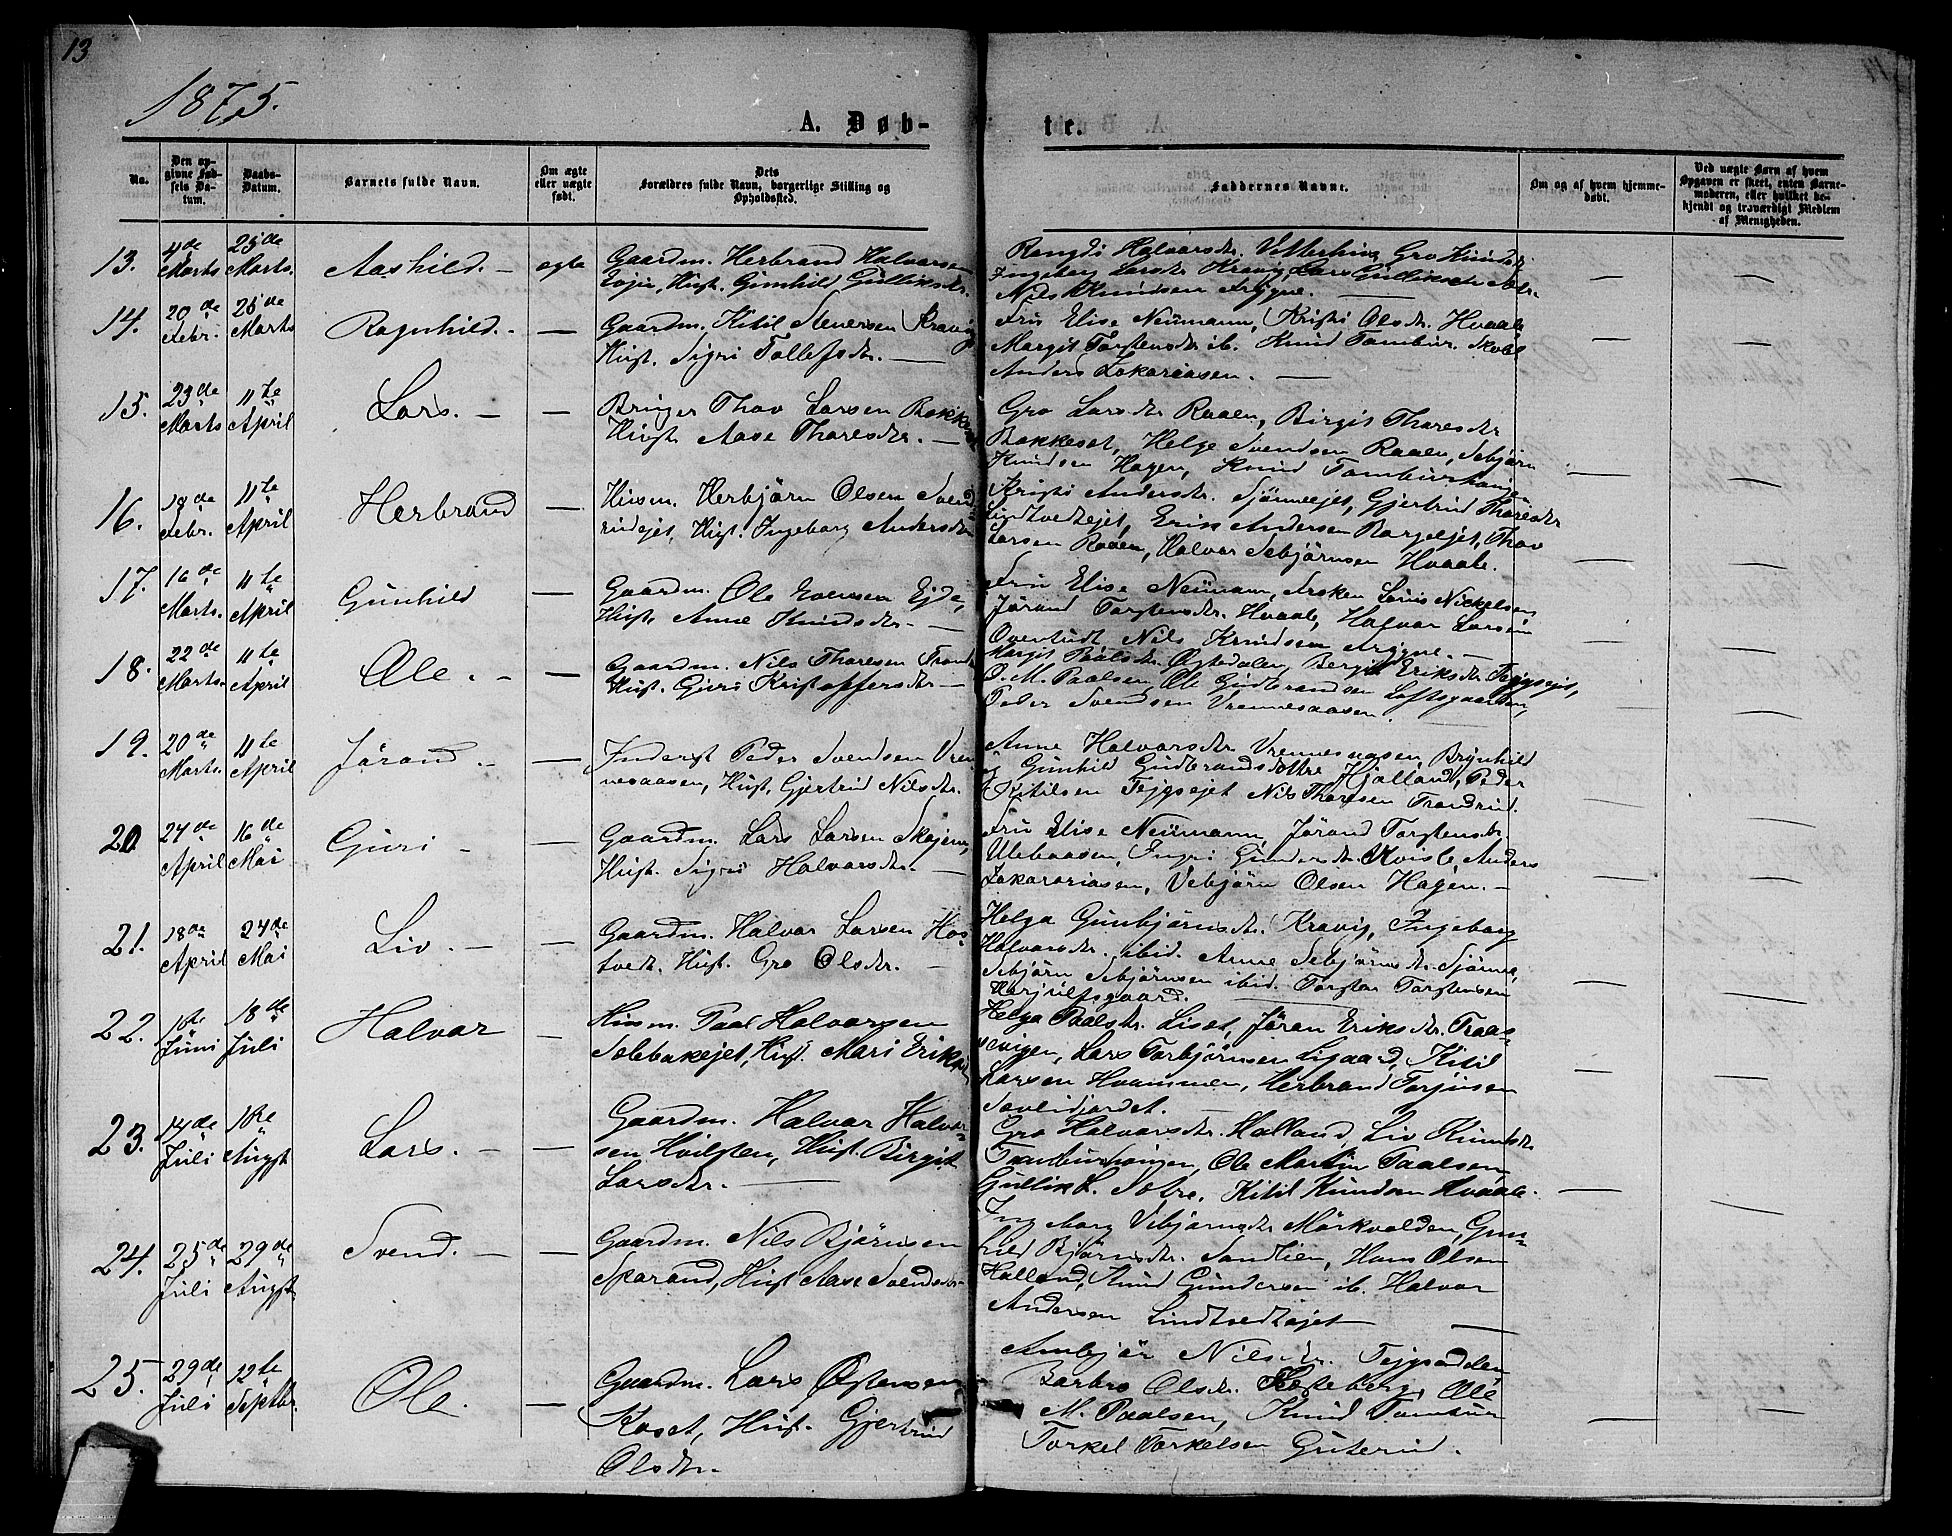 13
1875.
A. Døb-
te.
No.
Den op-
givne Fød-
sels Da-
tum.
Daabs-
Datum.
Barnets fulde Navn.
Om ægte
eller uægte
født.
Dets
Forældres fulde Navn, borgerlige Stilling og
Opholdssted.
Faddernes Navne.
Om og af hvem hjemme-
døbt.
Ved uægte Børn af hvem
Opgaven er skeet, enten Barne-
moderen, eller hvilket be-
kjendt og troværdigt Medlem
af Menigheden.
13. 4de Marts 25de Marts. Aashild. — ægte
Gaardm. Herbrand Halvorsen
Hust. Gunhild Gulliksdtr.
Rangdi Halvorsdtr. Gro Knudsdtr.
Ingeborg Larsdtr. Kravig, Lars Gulliksen
Nils Knudsen Frygne. —
14. 20de Febr. 28de Marts Ragnhild. — —
Gaardm. Kitil Stenersen Kravig
Hust. Sigri Tollefsdtr. —
Fru Elise Neumann, Kristi Olsdtr. Hvaale
Margit Torstensdtr. ib. Knud Tambur
Anders Zakariasen. —
15. 23de Marts 11te April Lars. — —
Bruger Thov Larsen Bakkeset
Hust. Aase Thoresdtr. —
Gro Larsdtr. Raaen, Birgit Thoresdtr.
Bakkeset, Helge Svendsen Raaen, Sebjörn
Knudsen Hagen, Knud Tamburhaugen
16. 18de Febr. 11te April Herbrand —
Husm. Herbjörn Olsen Svend-
rudejet, Hust. Ingeborg Andersdtr.
Kristi Andersdtr. Sjönneejet, Gjertrud Thoresdtr
Lindtvedtejet, Erik Andersen Thov
Larsen Raaen, Halvor Sebjörnsen Hvaale.
17. 16de Marts. 11te April Gunhild —
Gaardm. Ole Evensen Ejde,
Hust. Anne Knudsdtr. —
Fru Elise Neumann, Frøken Louis Nickelsen,
Jörand Torstensdtr. Hvaale, Halvor Larsen
Nils Knudsen Frygne. —
18. 22de Marts. 11te April Ole. — —
Gaardm. Nils Thoresen
Hust. Gjuri Kristoffersdtr. —
Margit Paalsdtr. Bergit Eriksdtr. Tejgsejet,
O. M. Paalsen, Ole Gudbrandsen Loftsgaarden,
Peder Svendsen Vrennesaasen.
19. 20de Marts. 11te April Jörand. — —
Inderst Peder Svendsen Vren-
nesaasen, Hust. Gjertrud Nilsdtr.
Anne Halvorsdtr. Vrennesaasen, Brynhild
og Gunhild Gudbrandsdøttre Hjalland, Peder
Kitilsen Tejgsejet, Nils Thoresen
20 27de April 16de Mai Guri — —
Gaardm. Lars Larsen
Hust. Sigri Halvorsdtr. —
Fru Elise Neumann, Jörand Torstensdtr.
Ulevaasen, Ingri Gundersdtr. Kvisle, Anders
Zakarariasen, Vebjörn Olsen Hagen. —
21. 18de April 24de Mai Liv. — —
Gaardm. Halvor Larsen Hos-
tvedt. Hust. Gro Olsdtr. —
Helga Gunbjörnsdtr. Kravig, Ingeborg
Halvorsdtr. ibid. Anne Sebjörnsdtr.
Sebjörn Sebjörnsen ibid. Torsten Torstensen
Herjulfsgaard. —
22. 1ste Juni 18de Juli Halvor —
Husm. Paal Halvorsen
Hust. Mari Eriksdtr
Helga Paalsdtr. Liset, Jören Eriksdtr. Traas-
vigen, Lars Torbjörnsen Ligaard, Kitil
Larsen Hvammen, Herbrand Torjusen
23. 14de Juli 1ste Augst Lars. — —
Gaardm. Halvor Halvor-
sen Hvilsten, Hust. Birgit
Larsdtr. —
Gro Halvorsdtr. Halland, Liv Knudsdtr.
Tamburhaugen, Ole Martin Paalsen,
Gullik L. Kitil Knudsen Hvaale.
24. 25de Juli 29de Augst Svend. — —
Gaardm. Nils Björnsen
Sporand, Hust Aase Svendsdtr
Ingeborg Vebjörnsdtr. Mörkvolden, Gun-
hild Björnsdtr. Sandlien, Hans Olsen
Halland, Knud Gundersen ib. Halvor
Andersen Lindtvedtejet —
25. 29de Juli 12te Septbr. Ole. —
Gaardm. Lars Østensen
Koset, Hust. Gjertrud
Olsdtr.
Ambjör Nilsdtr.
Barbro Olsdtr. Ole
M. Paalsen, Knud Tambur
Torkel Torkelsen Guterud.